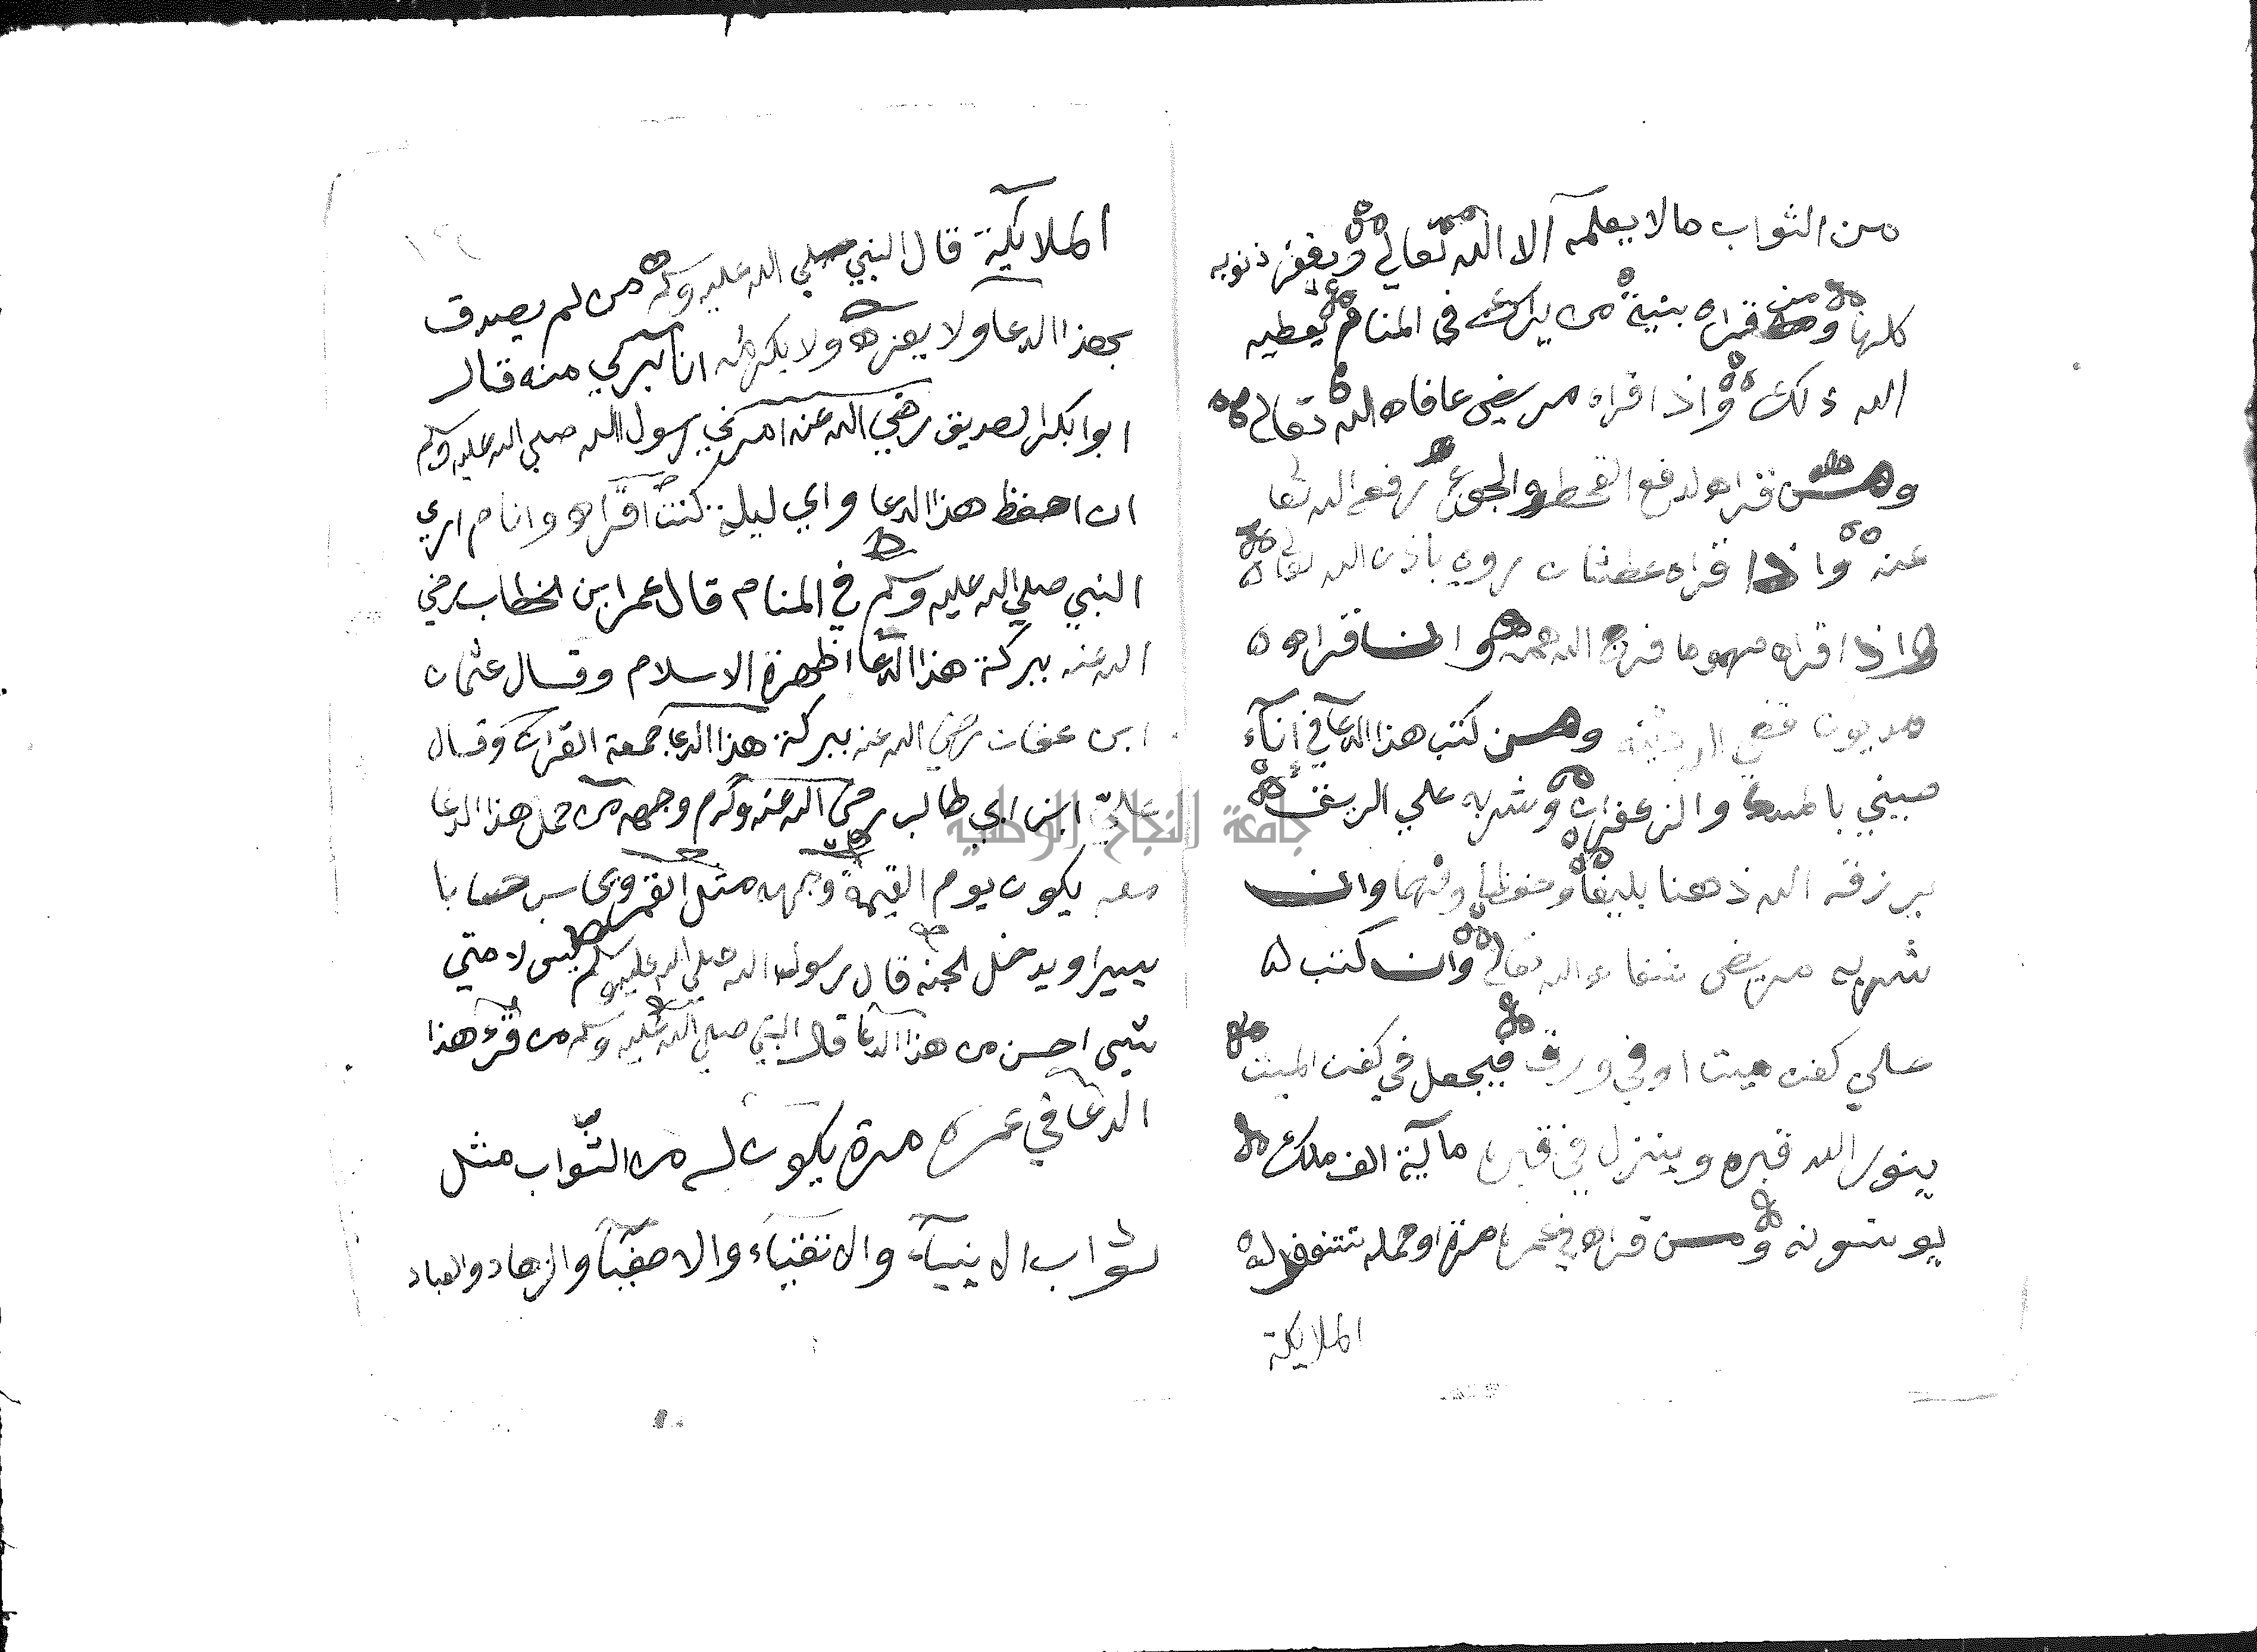 من الثواب مالا يعلمه الا الله تعالي ويغفر ذنوبه
كلها ومن قراه بنية من يراك في المنام يعطيه
الله ذلك واذا قراه مريض عافاه الله تعالي
ومن قراه لدفع القحط والجوع رفع الله تعا
عنه واذا قراه عطشان روي باذن الله تعا
واذا قراه مهموما فرج الله همه وان قراه
مديون قضي الله دينه ومن كتب هذا الدعا في اناء
صيني بالمسك والزعفران وشربه علي الريق
يرزقه الله ذهنا بليغا وحفظا وفهما وان
شربه مريض شفاه الله تعالي وان كتب
علي كفن ميت او في ورق فيجعل في كفن الميت
ينور الله قبره وينزل في قبره مآية الف ملك
يونسونه ومن قراه في عمره مرة او حمله تستغفر له
الملايكة
الملايكة قال النبي صلي الله عليه وسلم من لم يصدق
بهذا الدعا ولا يعزه ولا يكرمه انا بري منه قال
ابوا بكر الصديق رضي الله عنه امرني رسول الله صلي الله عليه وسلم
ان احفظ هذا الدعا واي ليلة كنت اقراه وانام اري
النبي صلي الله عليه وسلم في المنام قال عمر ابن الخطاب رضي
الله عنه ببركة هذا الدعا اظهرة الاسلام وقال عثمان
ابن عفان رضي الله عنه ببركة هذا الدعا جمعة القران وقال
علي ابن ابي طالب رضي الله عنه وكرم وجهه من حمل هذا الدعا
معه يكون يوم القيمة وجهه مثل القمر ويحاسب حسابا
يسيرا ويدخل الجنه قال رسول الله صلي الله عليه وسلم ليس لامتي
شي احسن من هذا الدعا قال النبي صلي الله عليه وسلم من قرء هذا
الدعا في عمره مرة يكون له من الثواب مثل
ثواب الانبيآء والاتقيآء والاصفيآ والزهاد والعباد
جامعة النجاح الوطنية